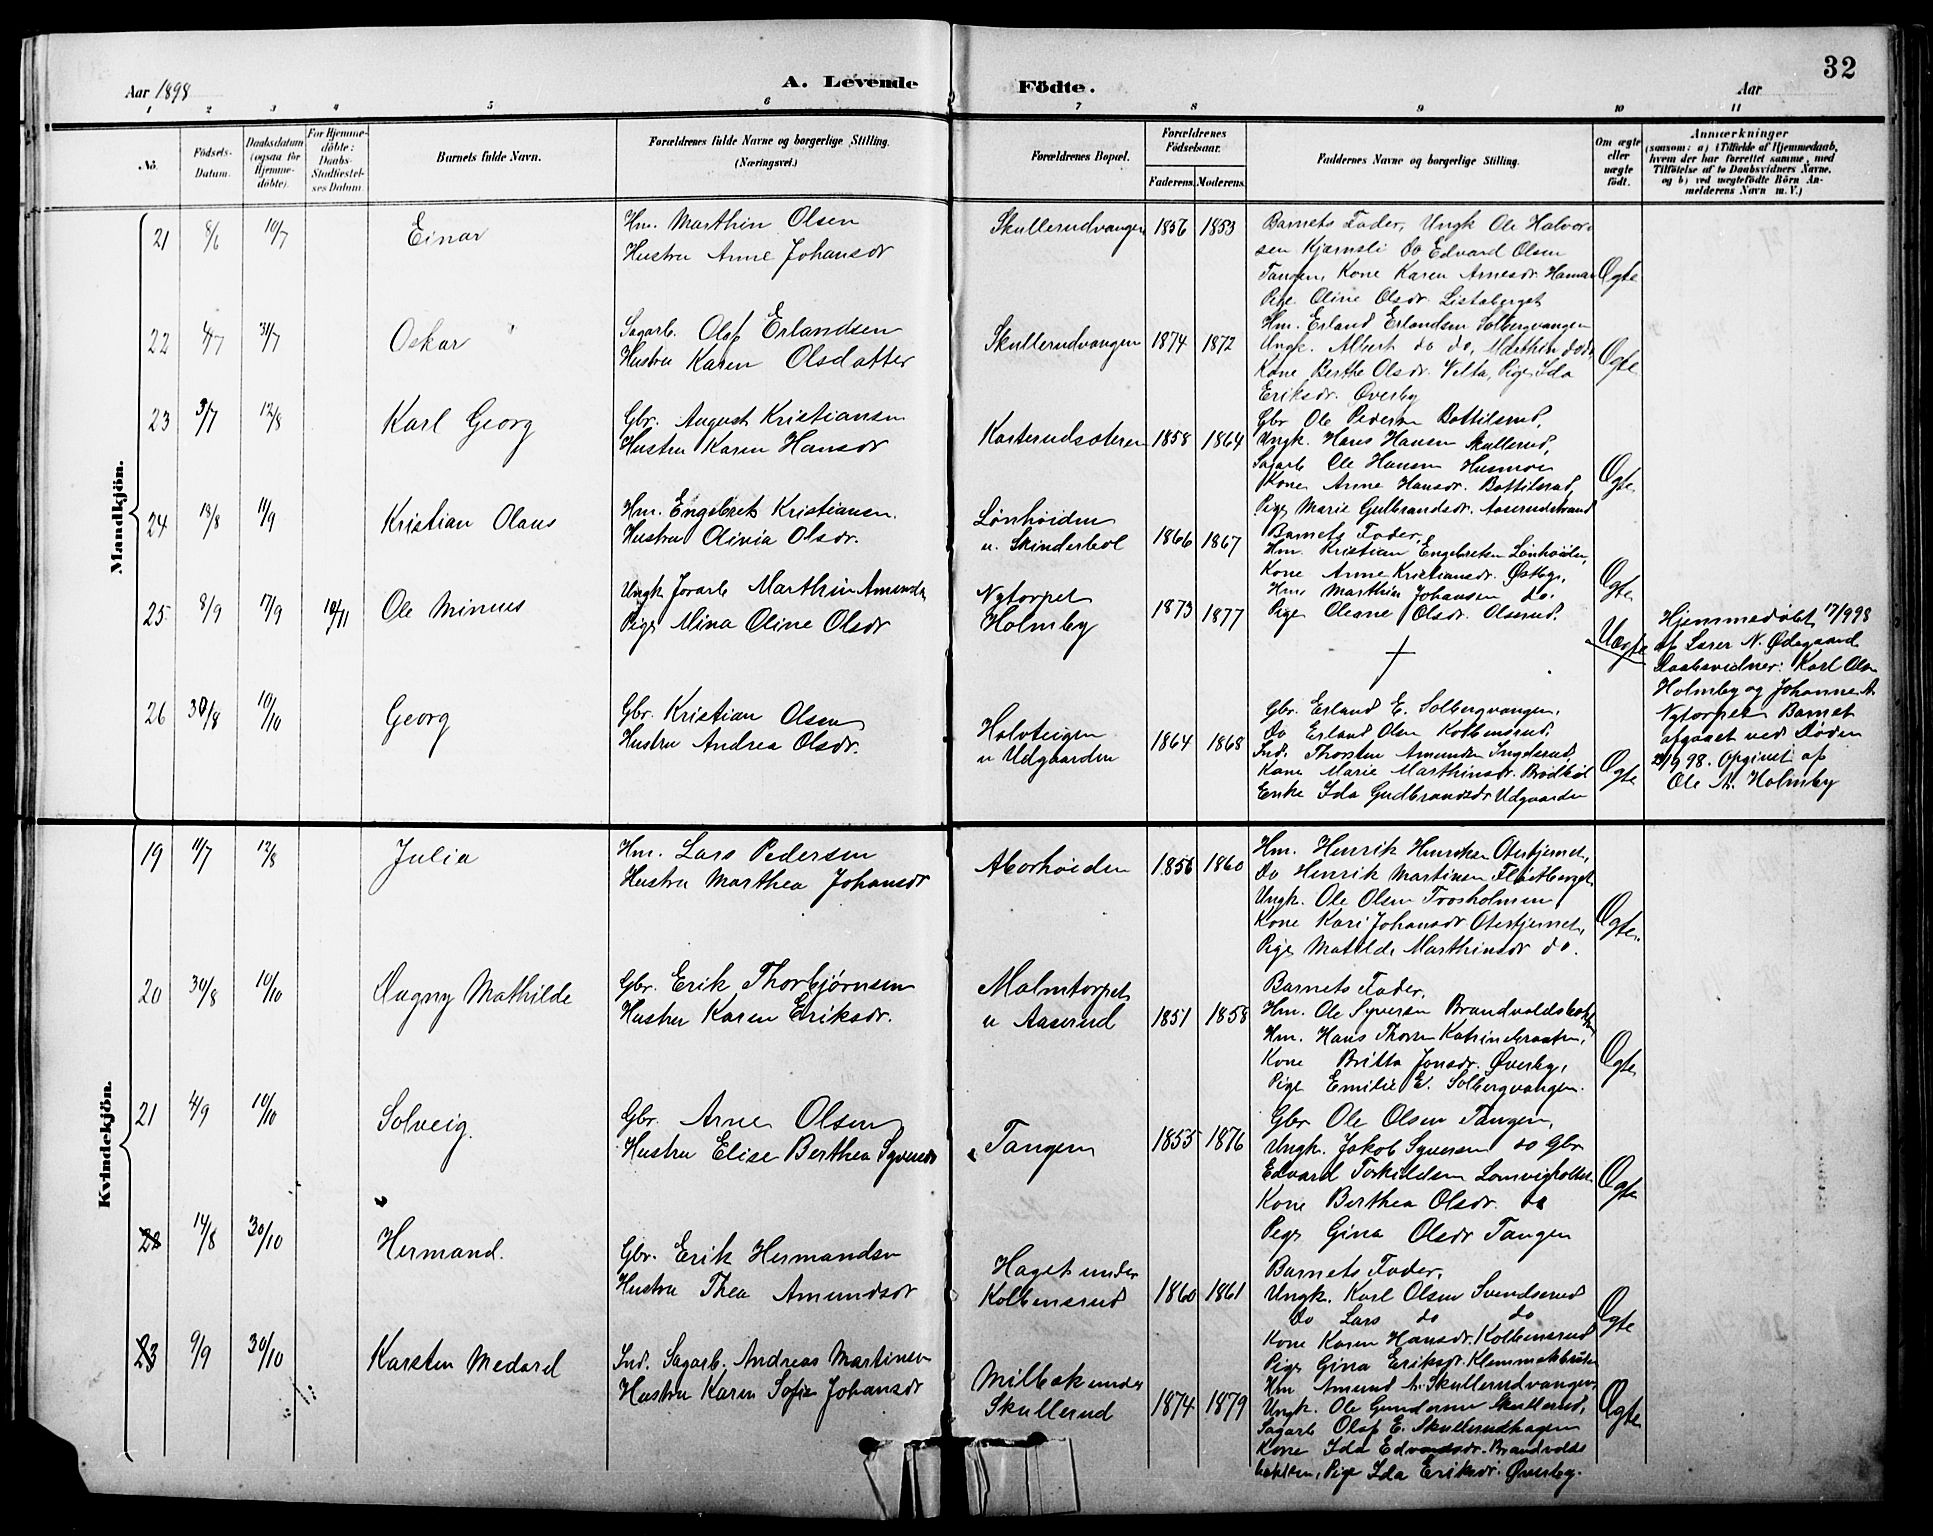 32
Aar 1898
A. Levende
Födte.
Aar
1 2 3 4 5 6 7 8 9 10 11
No.
Födsels-
Datum.
Daabsdatum
(ogsaa for
Hjemme-
döbte).
For Hjemme-
döbte:
Daabs-
Stadfæstel-
ses Datum.
Barnets fulde Navn.
Forældrenes fulde Navne og borgerlige Stilling.
(Næringsvei.)
Forældrenes Bopæl.
Forældrenes
Födselsaar.
Faderens. Moderens.
Faddernes Navne og borgerlige Stilling.
Om ægte
eller
uægte
födt.
Anmærkninger
(saasom: a) i Tilfælde af Hjemmedaab,
hvem der har forrettet samme, med
Tilföielse af to Daabsvidners Navne,
og b) ved uægtefödte Börn An-
melderens Navn m. V.)
Mandkjön.
21 8/6 10/7 Einar
Hm. Marthin Olsen
Hustru Anne Johansdr
Skullerudvangen 1856 1853
Barnets Fader, Ungk Ole Halvor
sen Kjærnsli Do Edvard Olsen
Tangen, Kone Karen Arnesdr.
Pige Oline Olsdr. Listaberget
Ægte
22 4/7 31/7 Oskar
Sagarb. Olaf Erlandsen
Hustru Karen Olsdatter
Skullerudvangen 1874 1872
Hm. Erland Erlandsen Solbergvangen
Ungk. Albert do do, Marthin do do,
Kone Berthe Olsdr. Velta, Pige Ida
Eriksdr. Øverby
Ægte
23 3/7 12/8 Karl Georg
Gbr. August Kristiansen
Hustru Karen Hansdr
Kasterudsæteren 1858 1864
Gbr Ole Pedersen Bottilsrud,
Ungk. Hans Hansen Skullerud,
Sagarb Ole Hansen Husmoen
Kone Anne Hansdr. Bottilsrud,
Pige Marie Gulbrandsdr. Aaserudstrand
Ægte
24 18/8 11/9 Kristian Olaus
Hm. Engebret Kristiansen.
Hustru Olivia Olsdr.
Lønhøiden
u. Skinderbøl 1866 1867
Barnets Fader,
Hm. Kristian Engebretsen Lønhøiden,
Kone Anne Kristiansdr. Østbye,
Hm Marthin Johansen do.
Pige Oleane Olsdr. Olserud.
Ægte
25 8/9 17/9 Ole Minius
Ungk Jorarb Marthin Amundsen
Pige Mina Oline Olsdr
Nytorpet
Holmby 1873 1877
†
Uægte
Hjemmedøbt 17/9 98
af Lærer N. Ødegaard
Daabsvidner: Karl Olsen
Holmby og Johanne A.
Nytorpet. Barnet
afgaaet ved Døden
9 98. Opgivet af
Ole A. Holmby
26 30/8 10/10 Georg
Gbr. Kristian Olsen
Hustru Andrea Olsdr.
Halvteigen
u Udgaarden 1864 1868
Gbr. Erland E. Solbergvangen,
Do Erland Olsen Kolbensrud,
Ind. Thorsten Amundsen Ingelsrud,
Kone Marie Marthinsdr. Brødbøl
Enke Ida Gudbrandsdr Udgaarden
Ægte
Kvindekjön.
19 11/7 12/8 Julia
Hm. Lars Pedersen
Hustru Marthea Johansdr
Aborhøiden 1856 1860
Hm. Henrik Henriksen Otertjernet,
Do Henrik Martinsen Fløitberget
Ungk. Ole Olsen Frosholmen,
Kone Kari Johansdr Otertjernet,
Pige Matilde Marthinsdr do.
Ægte.
20 30/8 10/10 Dagny Mathilde
Gbr. Erik Thorbjørnsen
Hustru Karen Eriksdr.
Malmtorpet
u Aaserud 1851 1858
Barnets Fader,
Hm. Ole Syversen
Hm. Hans Thorsen
Kone Britta Jonsdr. Øverby,
Pige Emilie E. Solbergvangen.
Ægte
21 4/9 10/10 Solveig.
Gbr. Arne Olsen
Hustru Elise Berthea Syversdr
Tangen 1855 1876
Gbr Ole Olsen Tangen,
Ungk. Jakob Syversen do Gbr
Edvard Torkildsen
Kone Berthea Olsdr. do
Pige Gina Olsdr Tangen
Ægte
22 14/8 30/10 Hermand.
Gbr. Erik Hermandsen
Hustru Thea Amundsdr
Haget under
Kolbensrud 1860 1861
Barnets Fader,
Ungk. Karl Olsen Svendserud
Do Lars do do
Kone Karen Hansdr. Kolbensrud
Pige Gina Eriksdr.
Ægte
23 9/9 30/10 Karsten Medard
Ind. Sagarb. Andreas Martinsen
Hustru Karen Sofie Johansdr
Milbak under
Skullerud 1874 1879
Hm Amund A. Skullerudvangen,
Ungk. Ole Gundersen Skullerud,
Sagarb Olaf E. Skullerudhagen
Kone Ida Edvardsdr. Brandvolds
bakken, Pige Ida Eriksdr. Øverby.
Ægte